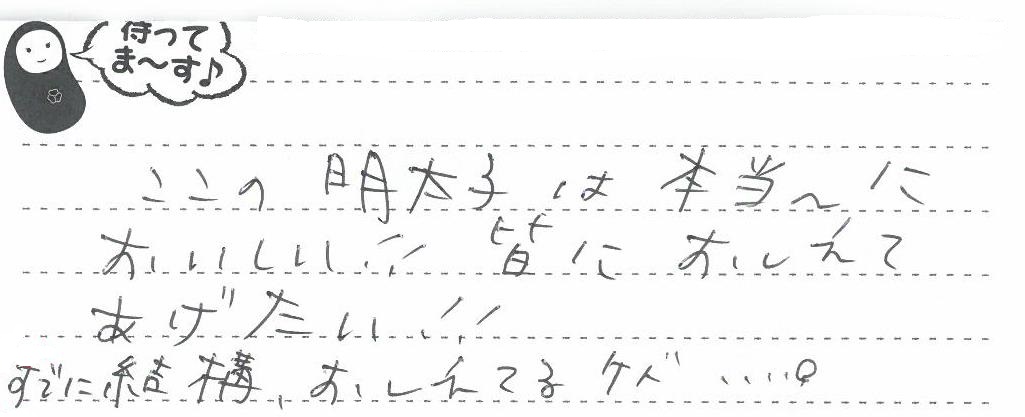 待って
ま〜す♪
ここの 明太子は 本当〜に
おいしい!! 皆に おしえて
あげたい!!
すでに結構、おしえてるケド ....。